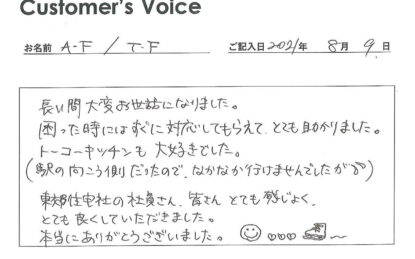 Customer's Voice
お名前 A-F / T-F ご記入日 2021年 8月 9日
長い間大変お世話になりました。
困った時にはすぐに対応してもらえて、とても助かりました。
トーコーキッチンも大好きでした。
(駅の向こう側だったので、なかなか行けませんでしたが)
東郊住宅社の社員さん、皆さんとても感じよく、
とても良くしていただきました。
本当にありがとうございました。